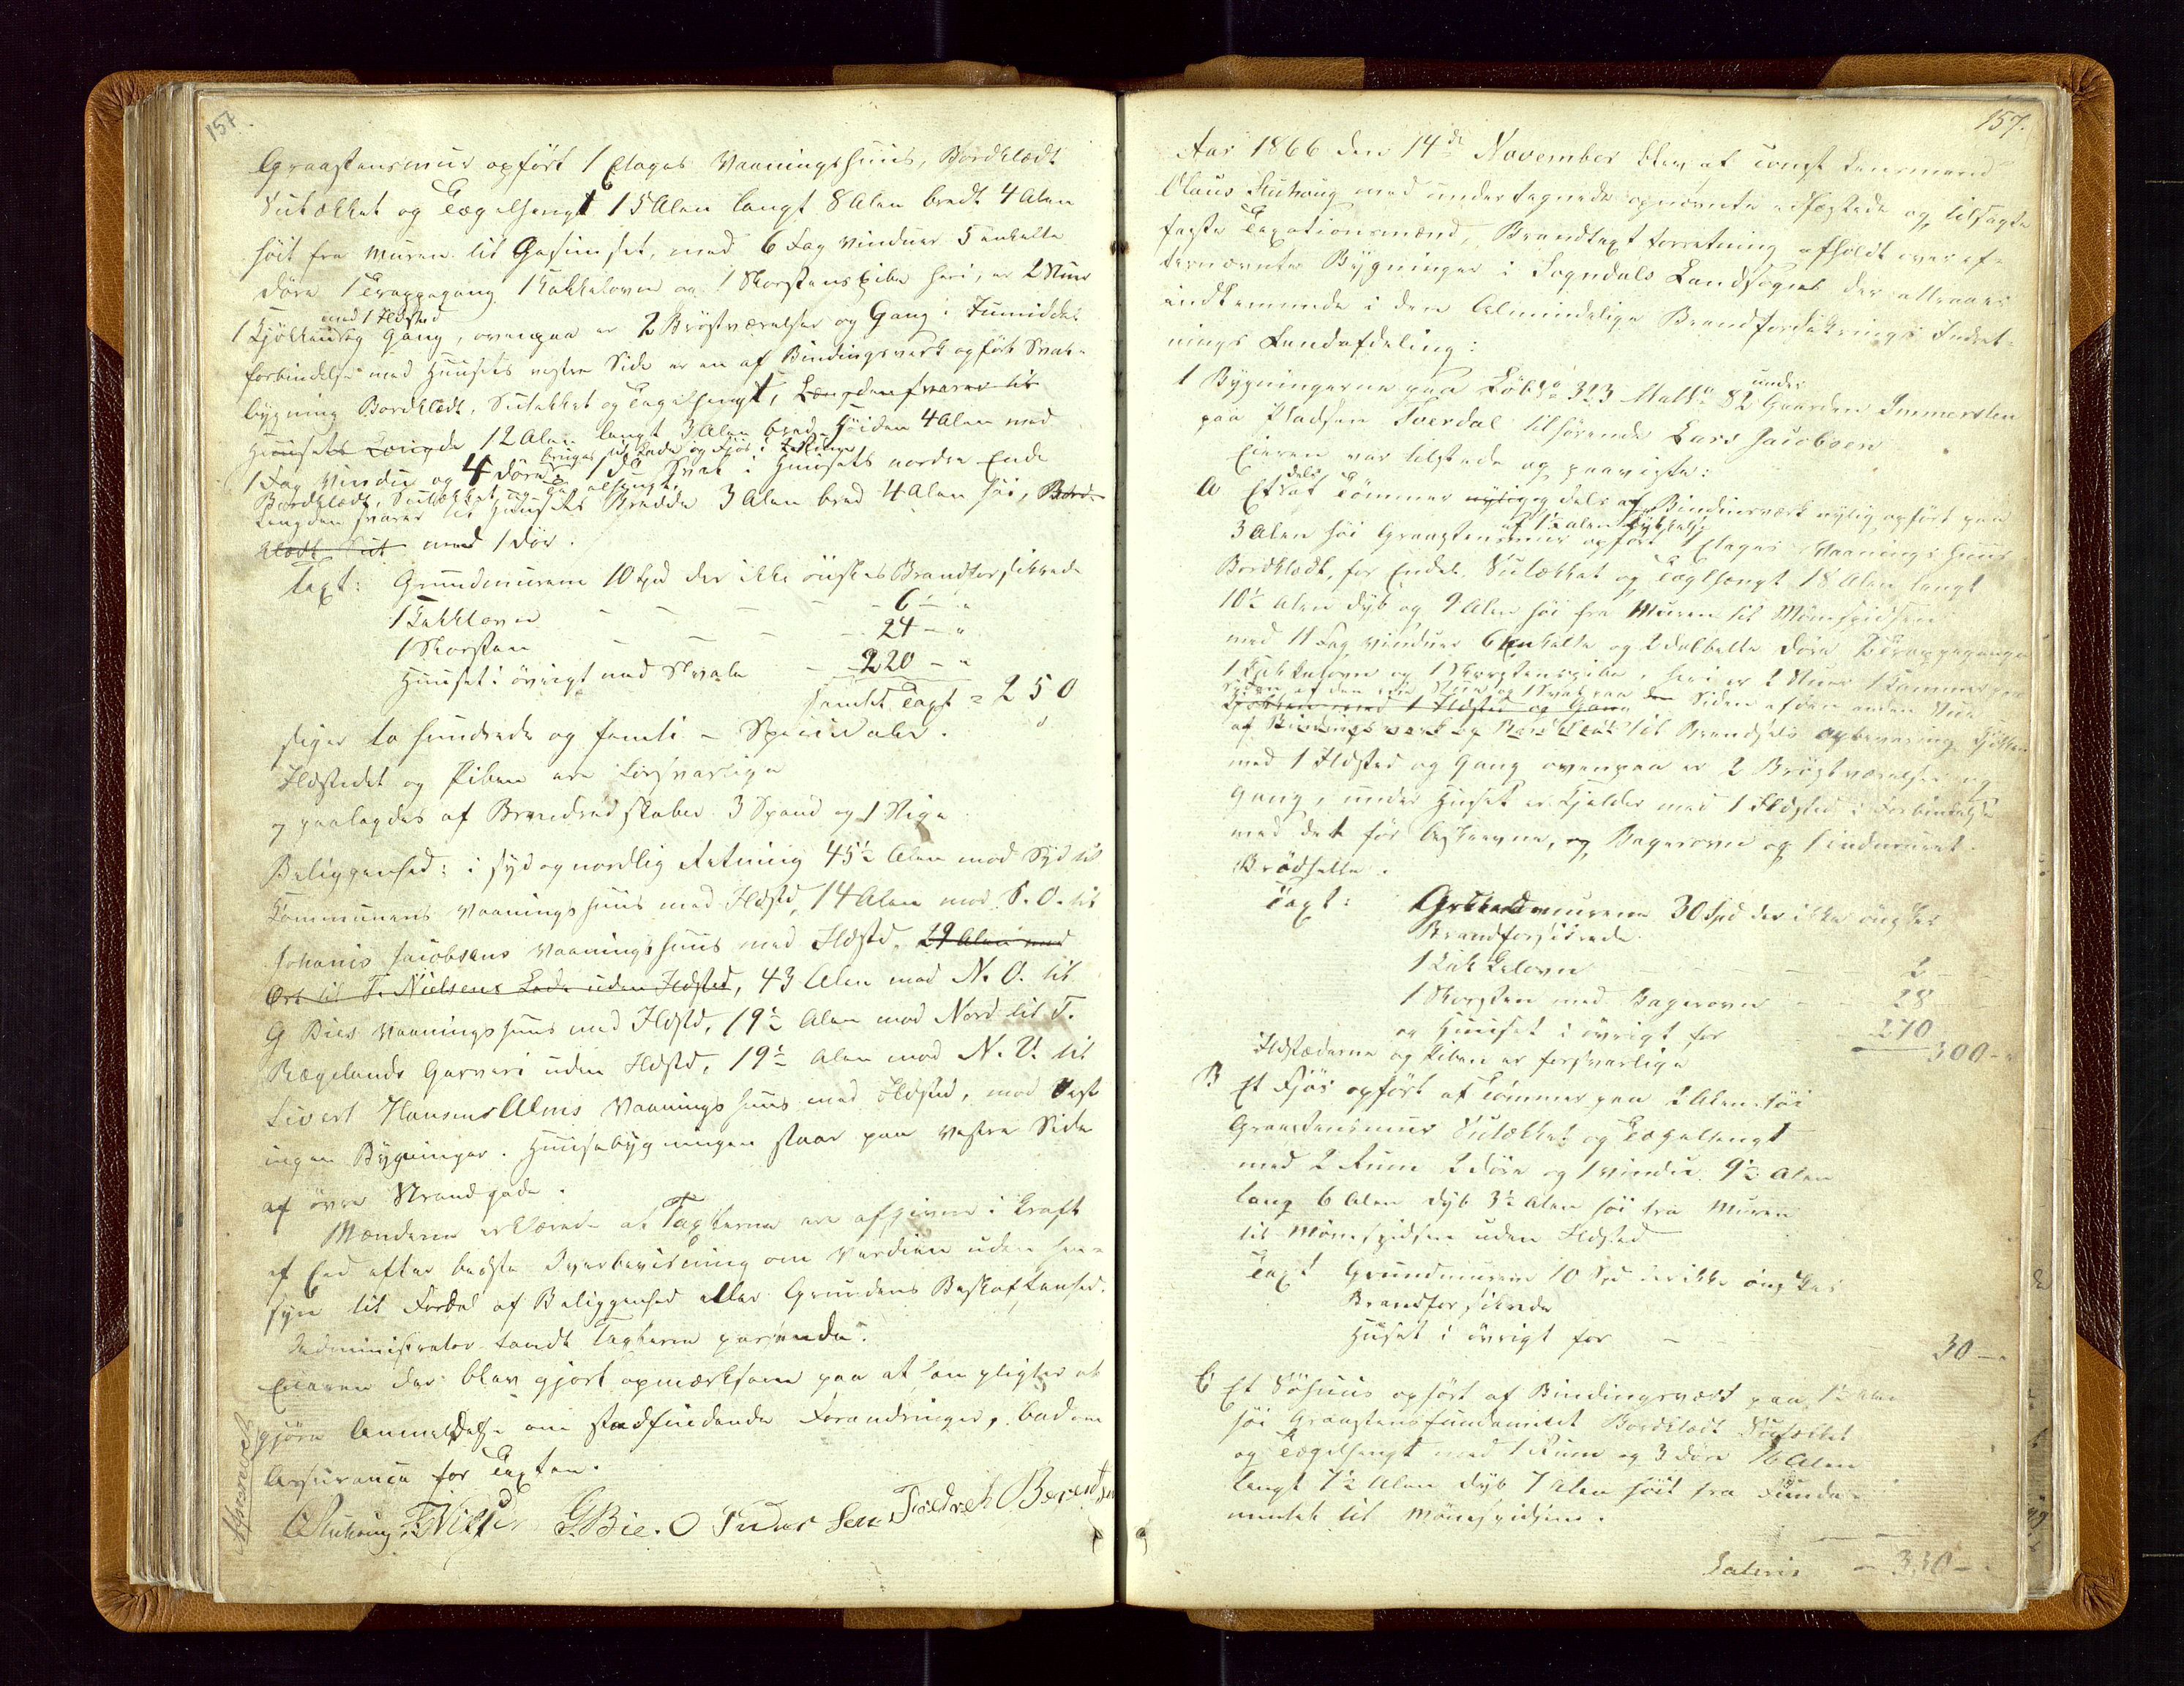 157.
Graastensmuur opført 1 Etages Vaaningshuus, Bordklædt
Sutækket og Tægelhengt 15 Alen langt 8 Alen bredt 4 Alen
høit fra Muren til Gesimset, med 6 Fag Vinduer 5 enkelte
Døre 1 Trappegang 1 Kakkelovn og 1 Skorstenspibe heri, er 2 Stuer
med 1 Ildsted
1 Kjøkken og Gang, ovenpaa er 2 Brystværelser og Gang i Inmiddel-
forbindelse med Huusets vestre Side er en af Bindingsverk opført Sval-
bygning Bordklædt, Sutækket og Tægelhengt, Længden svarer til
Huusets Længde 12 Alen langt 3 Alen bred Høiden 4 Alen med
bruges til Lade og Fjøs i
1 Fag Vindue og 4 Døre 1 do Sval i Huusets nordre Ende
Bordklædt, Sutækket og Tægelhengt,
Længden svarer til Huusets Bredde 3 Alen bred 4 Alen høi, Bord-
klædt Sut med 1 Dør.
Taxt: Grundmurene 10 Spd der ikke ønskes Brandforsikrede
1 Kakkelovn - - - - 6 - "
1 Skorsten - - - - 24 - "
Huuset i øvrigt med Svale - 220 - "
samlet Taxt = 250
siger to hundrede og femti - Speciedaler.
Ildstedet og Piben ere forsvarlige
og paalagdes af Brandredskaber 3 Spand og 1 Stige
Beliggenhed: i syd og nordlig Retning 45½ Alen mod Syd til
Kommunens Vaaningshuus med Ildsted, 14 Alen mod S.O. til
Johanis Jacobsens Vaaningshuus med Ildsted, 29 Alen mod
Øst til T. Nielsens Lade uden Ildsted, 43 Alen mod N.O. til
G Bies Vaaningshuus med Ildsted, 19½ Alen mod Nord til T.
Rægelands Garveri uden Ildsted, 19½ Alen mod N.V. til
Sivert Hansens Alns Vaaningshuus med Ildsted, mod Vest
ingen Bygninger. Huusebygningen staar paa vestre Side
af øvre Strandgade.
Mændene erklærede at Taxterne ere afgivne i Kraft
af Eed efter bedste Overbeviisning om Værdien uden Hen-
syn til Fordel af Beliggenhed eller Grundens Beskaffenhed.
Administrator fandt Taxterne passende.
Eieren der blev gjort opmærksom paa at han pligter at
gjøre Anmeldelse om stedfindende Forandringer, bad om
Assurance for Taxten.
OStuhoug. TNielsen GBie. O Tudes Sen Fredrek Berentsen
157.
Aar 1866 den 14de November blev af const Lensmand
Olaus Stuhoug med undertegnede opnævnte edfæstede og tilsagte
faste Taxationsmænd, Brandtaxtforretning afholdt over ef-
ternævnte Bygninger i Sogndals Landsogn der attraaes
indkommende i den Almindelige Brandforsikrings Indret-
nings Landafdeling:
under
1 Bygningerne paa Løbno 323 Matno 82 Gaarden Immerstein
paa Pladsen Sverdal tilhørende Lars Jacobsen
Eieren var tilstede og paaviste:
dels
A Et af Tømmer nylig og dels af Bindingsværk nylig opført paa
af 1½ alen Tykkelse
3 Alen høi Graastensmuur opført 1 Etages Vaaningshuus
Bordklædt, for Endel Sutækket og Tæglhængt 18 Alen langt
10½ Alen dyb og 9 Alen høi fra Muren til Mønespidsen
med 11 Fag Vinduer 6 Enkelte og 2 dobbelte Døre 2 Trappegange
1 Kakkelovn og 1 Skorstenspibe, heri er 2 Stuer 1 Kammer paa
Siden af den ene Stue og 1 Sval paa den Siden af den anden Stue
Kjøkken med 1 Ildsted og Gang
af Bindingsverk og Bordklædt til Brændsels Opbevaring Kjøkken
med 1 Ildsted og Gang ovenpaa er 2 Brystværelser og
Gang, under Huset er Kjelder med 1 Ildsted i Forbindelse
med det før beskrevne, og Bagerovn og 1 indmuret
Brødhelle.
Taxt: Grundmurene 30 Spd der ikke ønskes
Brandforsikrede
1 Kakkelovn - - - 2 - -
1 Skorsten med Bagerovn - - 28
og Huuset i øvrigt for - 270
300 -
Ildstæderne og Piben er forsvarlige
B Et Fjøs opført af Tømmer paa 2 Alen høi
Graastensmuur Sutækket og Tægelhengt
med 2 Rum 2 Døre og 1 Vindue 9½ Alen
lang 6 Alen dyb 3½ Alen høi fra Muren
til Mønespidsen uden Ildsted
Taxt Grundmuren 10 Spd der ikke ønskes
Brandforsikrede
Huset i øvrigt for - 30 -
C Et Søhuus opført af Bindingsværk paa 1½ Alen
høi Graastensfundament Bordklædt Sutækket
og Tægelhengt med 1 Rum og 3 Døre 16 Alen
langt 7½ Alen dyb 7 Alen høit fra Funda-
mentet til Mønespidsen.
Lateris - 330 -